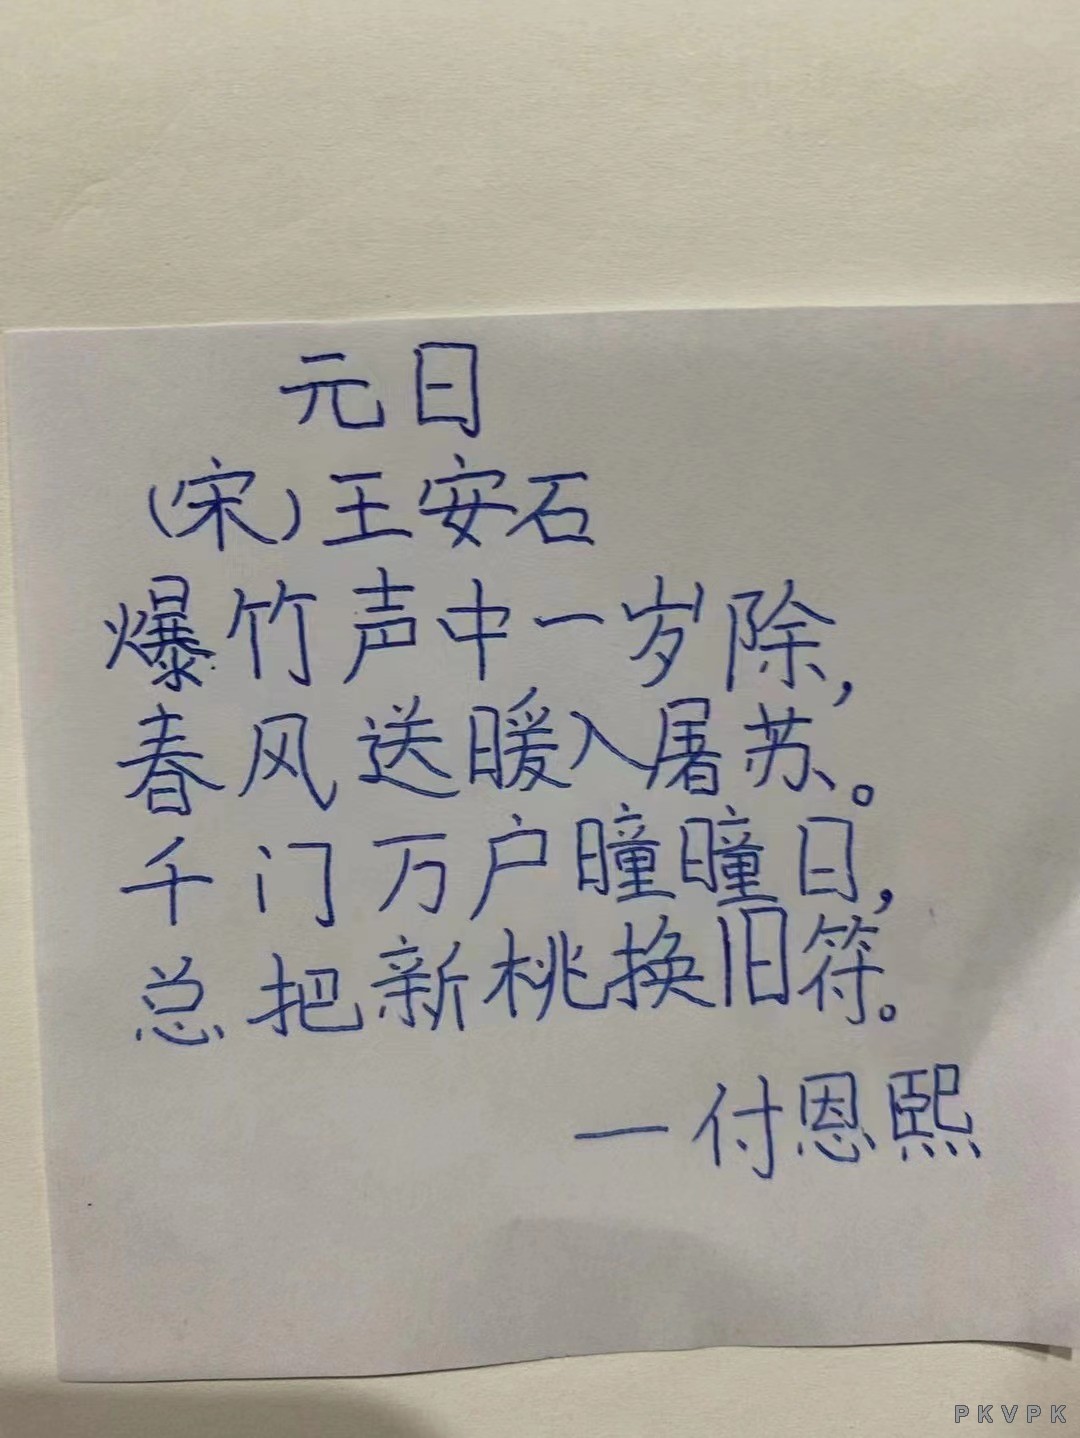 元日
(宋)王安石
爆竹声中一岁除,
春风送暖入屠苏。
千门万户曈曈日,
总把新桃换旧符。
一付恩熙
PKVPK